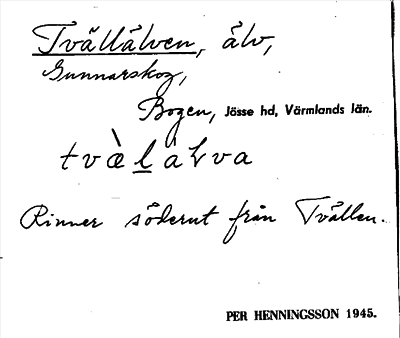 Tvällälven, älv,
Gunnarskog,
Bogen, Jösse hd, Värmlands län.
tvæ̀l̲àɫva
Rinner söderut från Tvällen.
PER HENNINGSSON 1945.